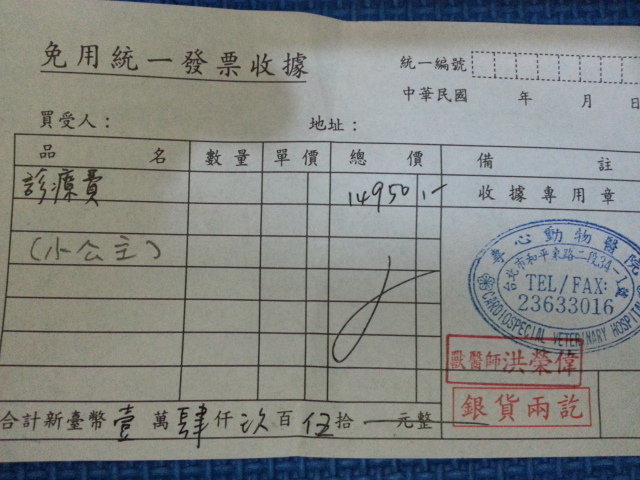 免用統一發票收據
統一編號
中華民國 年 月 日
買受人： 地址：
品名 數量 單價 總價 備註
診療費 14950.- 收據專用章
(小公主)
專心動物醫院
台北市和平東路二段34-1號
TEL/FAX:
23633016
CARDIOSPECIAL VETERINARY HOSPITAL
獸醫師 洪榮偉
銀貨兩訖
合計新臺幣壹萬肆仟玖百伍拾一元整